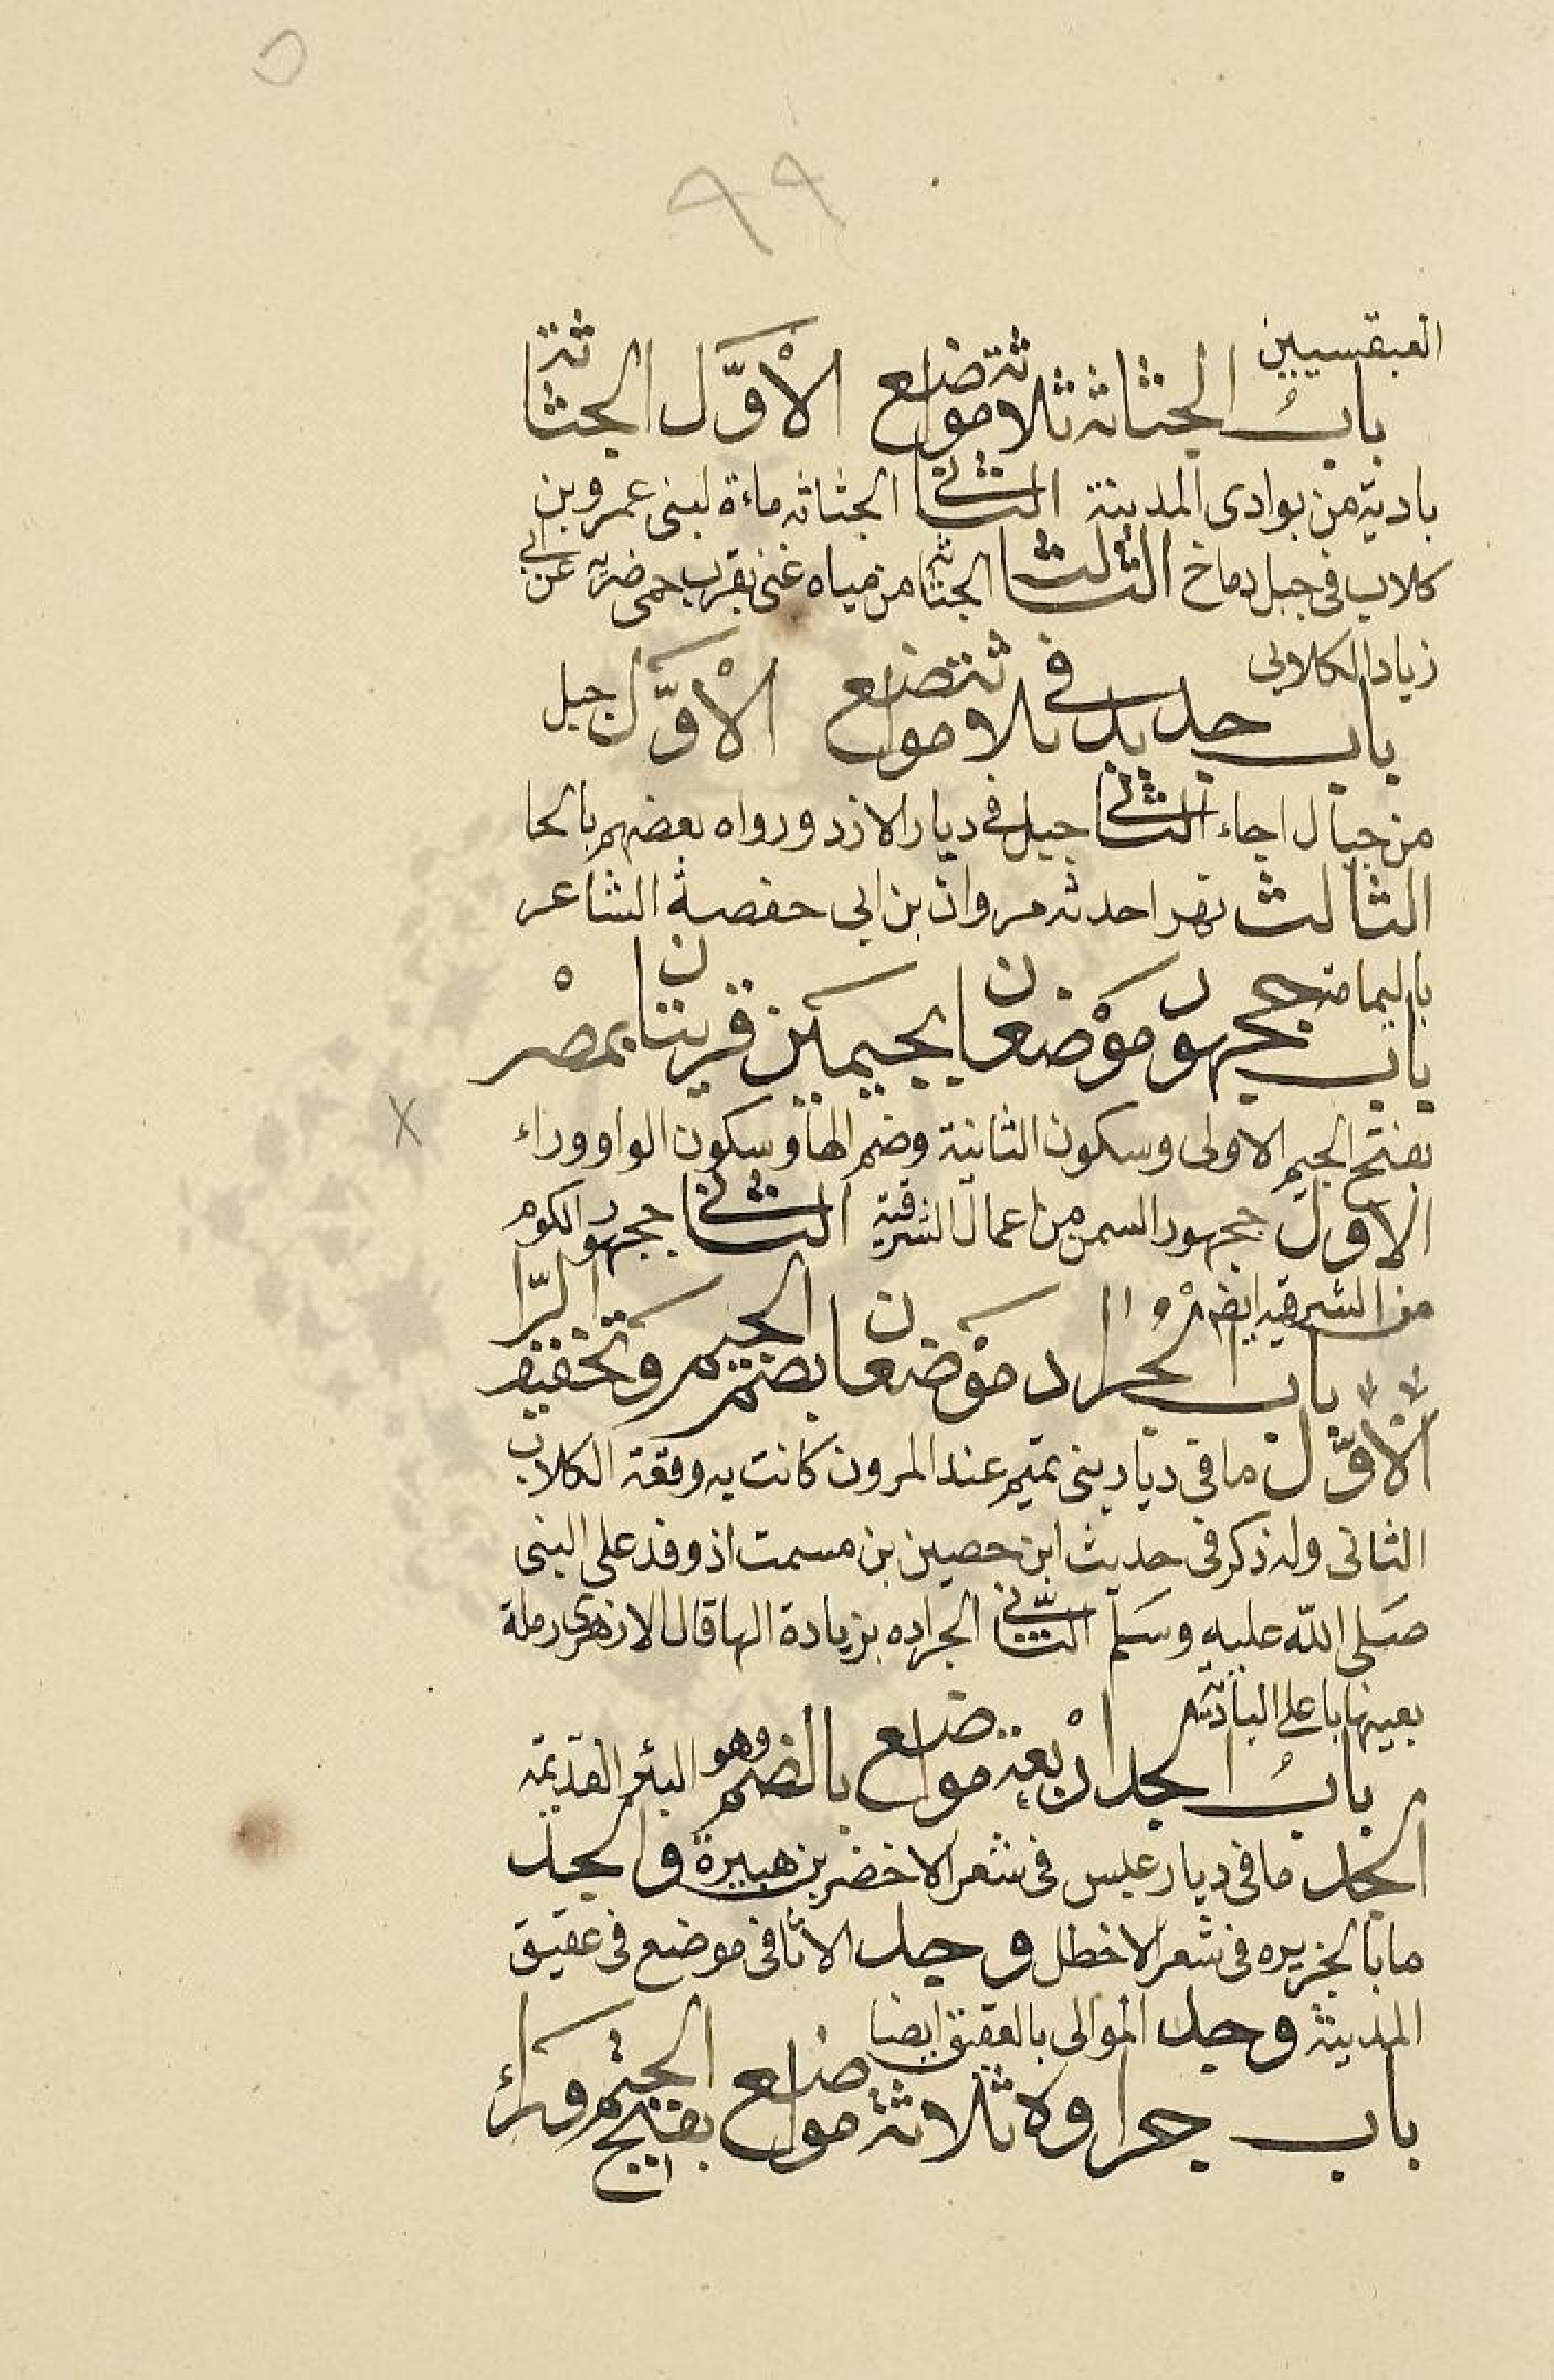 ٩٩
العبقسيين
بابُ الجثاثه ثلاثة مواضع الْأوَّل الجثاثة
بادية من بوادى المدينة الثانى الجثاثه ماءة لبنى عمرو بن
كلاب فى جبل دماخ الثالث الجثاثه من مياه غنى بقرب حمى ضريه عن ابى
زياد الكلابى
باب جديد فى ثلاثة مواضع الْأوَّل جبل
من جبال اجاء الثانى جبل فى ديار الازد ورواه بعضهم بالحا
الثالث نهر احدثه مروان بن ابى حفصة الشاعر
باليمامة
باب ججهور موْضعان بجيمين قريتان بمصْر
بفتح الجيم الاولى وسكون الثانية وضم الهاء وسكون الواو وراء
الاول ججهور السمن من اعمال الشرقية الثانى ججهور الكوم
من الشرقيه ايضا
باب الجراد موْضعان بضم الجيم وتخفيف الرّا
الْأوَّل ما فى ديار بنى تميم عند المروت كانت به وقعة الكلاب
الثانى وله ذكر فى حديث ابن حصين بن مسمت اذ وفد على النبى
صَلى الله عليه وسَلم الثّانى الجراده بزيادة الها قال الازهرى رملة
بعينها باعلى البادية
بابُ الجد ارْبعة مواضع بالضم وهو البئر القديمة
الجد ما فى ديار عبس فى شعر الاخضر بن هبيرة والجد
ما بالجزيره فى شعر الاخطل وجد الاثافى موضع فى عقيق
المدينة وجد الموالى بالعقيق ايضا
باب جراوه ثلاثة مواضع بفتح الجيم وراء